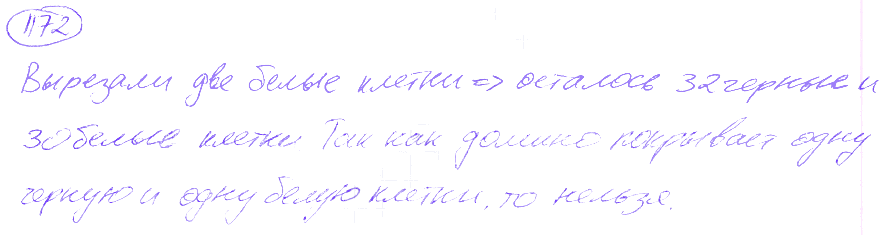 1172
Вырезали две белые клетки => осталось 32 черные и
30 белые клетки Так как домино покрывает одну
черную и одну белую клетки, то нельзя.